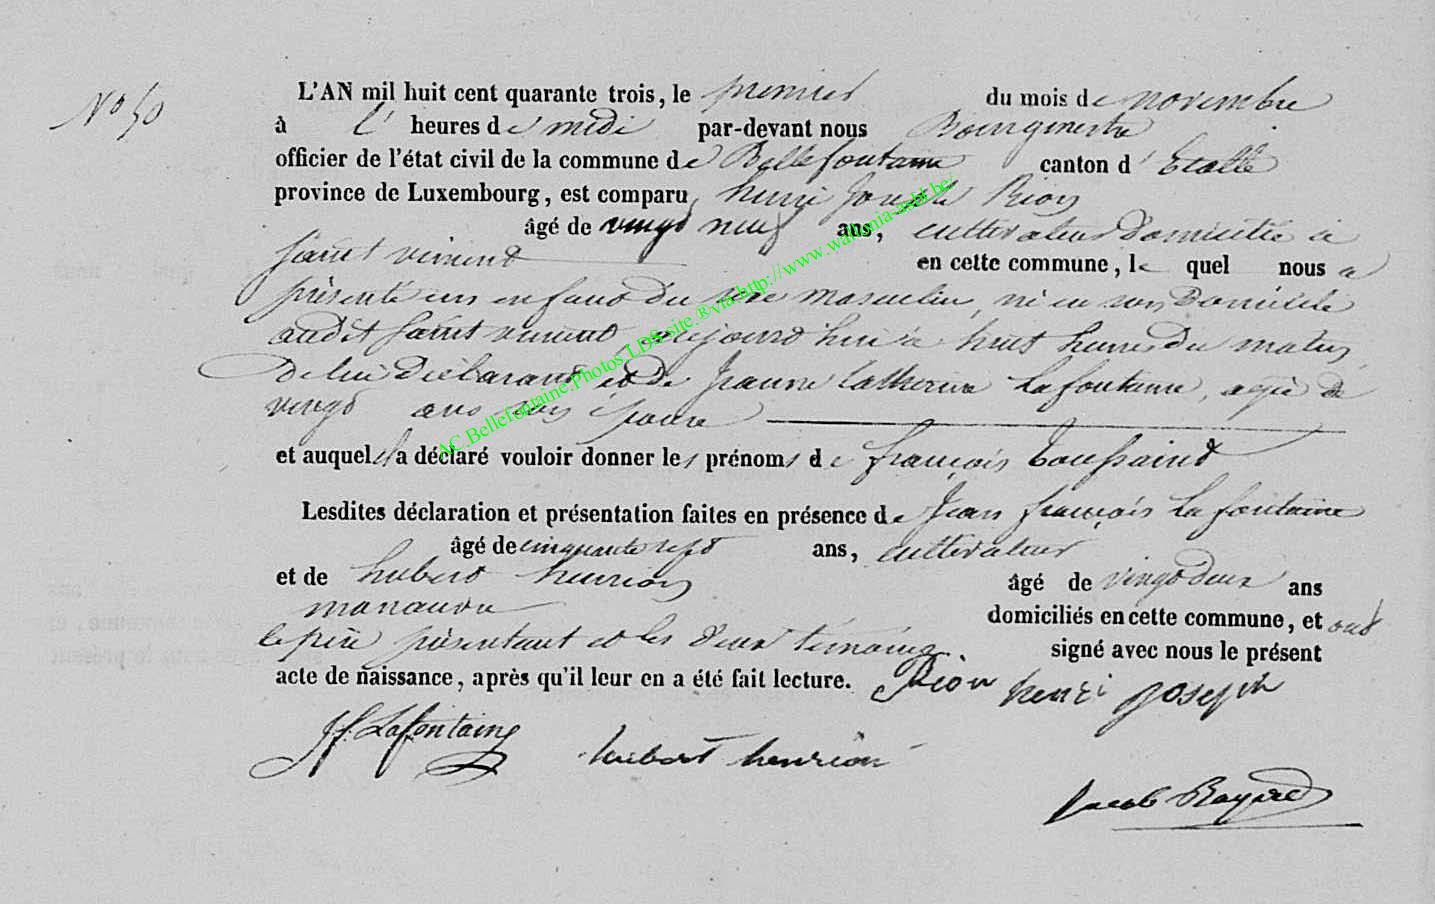 N° 50
L'AN mil huit cent quarante trois, le premier du mois de novembre
à l' heures de midi par-devant nous Bourgmestre
officier de l'état civil de la commune de Bellefontaine canton d'Etalle
province de Luxembourg, est comparu henri Joseph Rion
âgé de vingt neuf ans, cultivateur domicilié a
saint vincent en cette commune, le quel nous a
présenté un enfant du sexe masculin, né en son domicile
audit saint vincent, aujourd'hui à huit heures du matin
de lui déclarant et de Jeanne Catherine Lafontaine, agée de
vingt ans son épouse
et auquel il a déclaré vouloir donner les prénoms de françois toussaint
Lesdites déclaration et présentation faites en présence de Jean françois Lafontaine
âgé de cinquante sept ans, cultivateur
et de hubert henrion âgé de vingt deux ans
manœuvre domiciliés en cette commune, et ont
le père présentant et les deux témoins. signé avec nous le présent
acte de naissance, après qu'il leur en a été fait lecture. Rion henri joseph
JF. Lafontaine hubert henrion
Jacob
AC Bellefontaine Photos LDS site ® via http://www.wallonia-asbl.be/